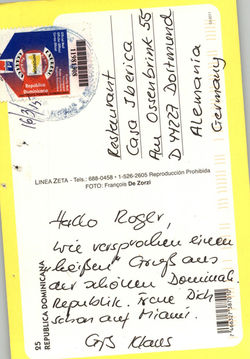 Hallo Roger,
wie versprochen einen
"heißen" Gruß aus
der schönen Dominik.
Republik. Freue Dich
schon auf Miami.
Gruß Klaus
Restaurant
Casa Iberica
Am Ossenbrink 55
D 44227 Dortmund
Alemania
Germany
LINEA ZETA - Tels.: 688-0458 • 1-526-2605 Reproducción Prohibida
FOTO: François De Zorzi
25
REPUBLICA DOMINICANA
República
Dominicana